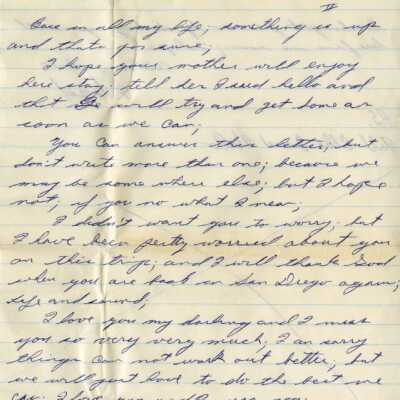 IV
Once in all my life; something is up
and thats for sure;
I hope your mother will enjoy
here stay; tell her I said hello and
that we will try and get home as
soon as we can;
You can answer this letter; but
don't write more than one; because we
may be some where else; but I hope
not; if you no what I mean;
I didn't want you to worry; but
I have been pretty worried about you
on this trip; and I will thank God
when you are back in San Diego again;
safe and sound;
I love you my darling and I miss
you so very very much; I am sorry
things can not work out better; but
we will just have to do the best we
can; I love you and